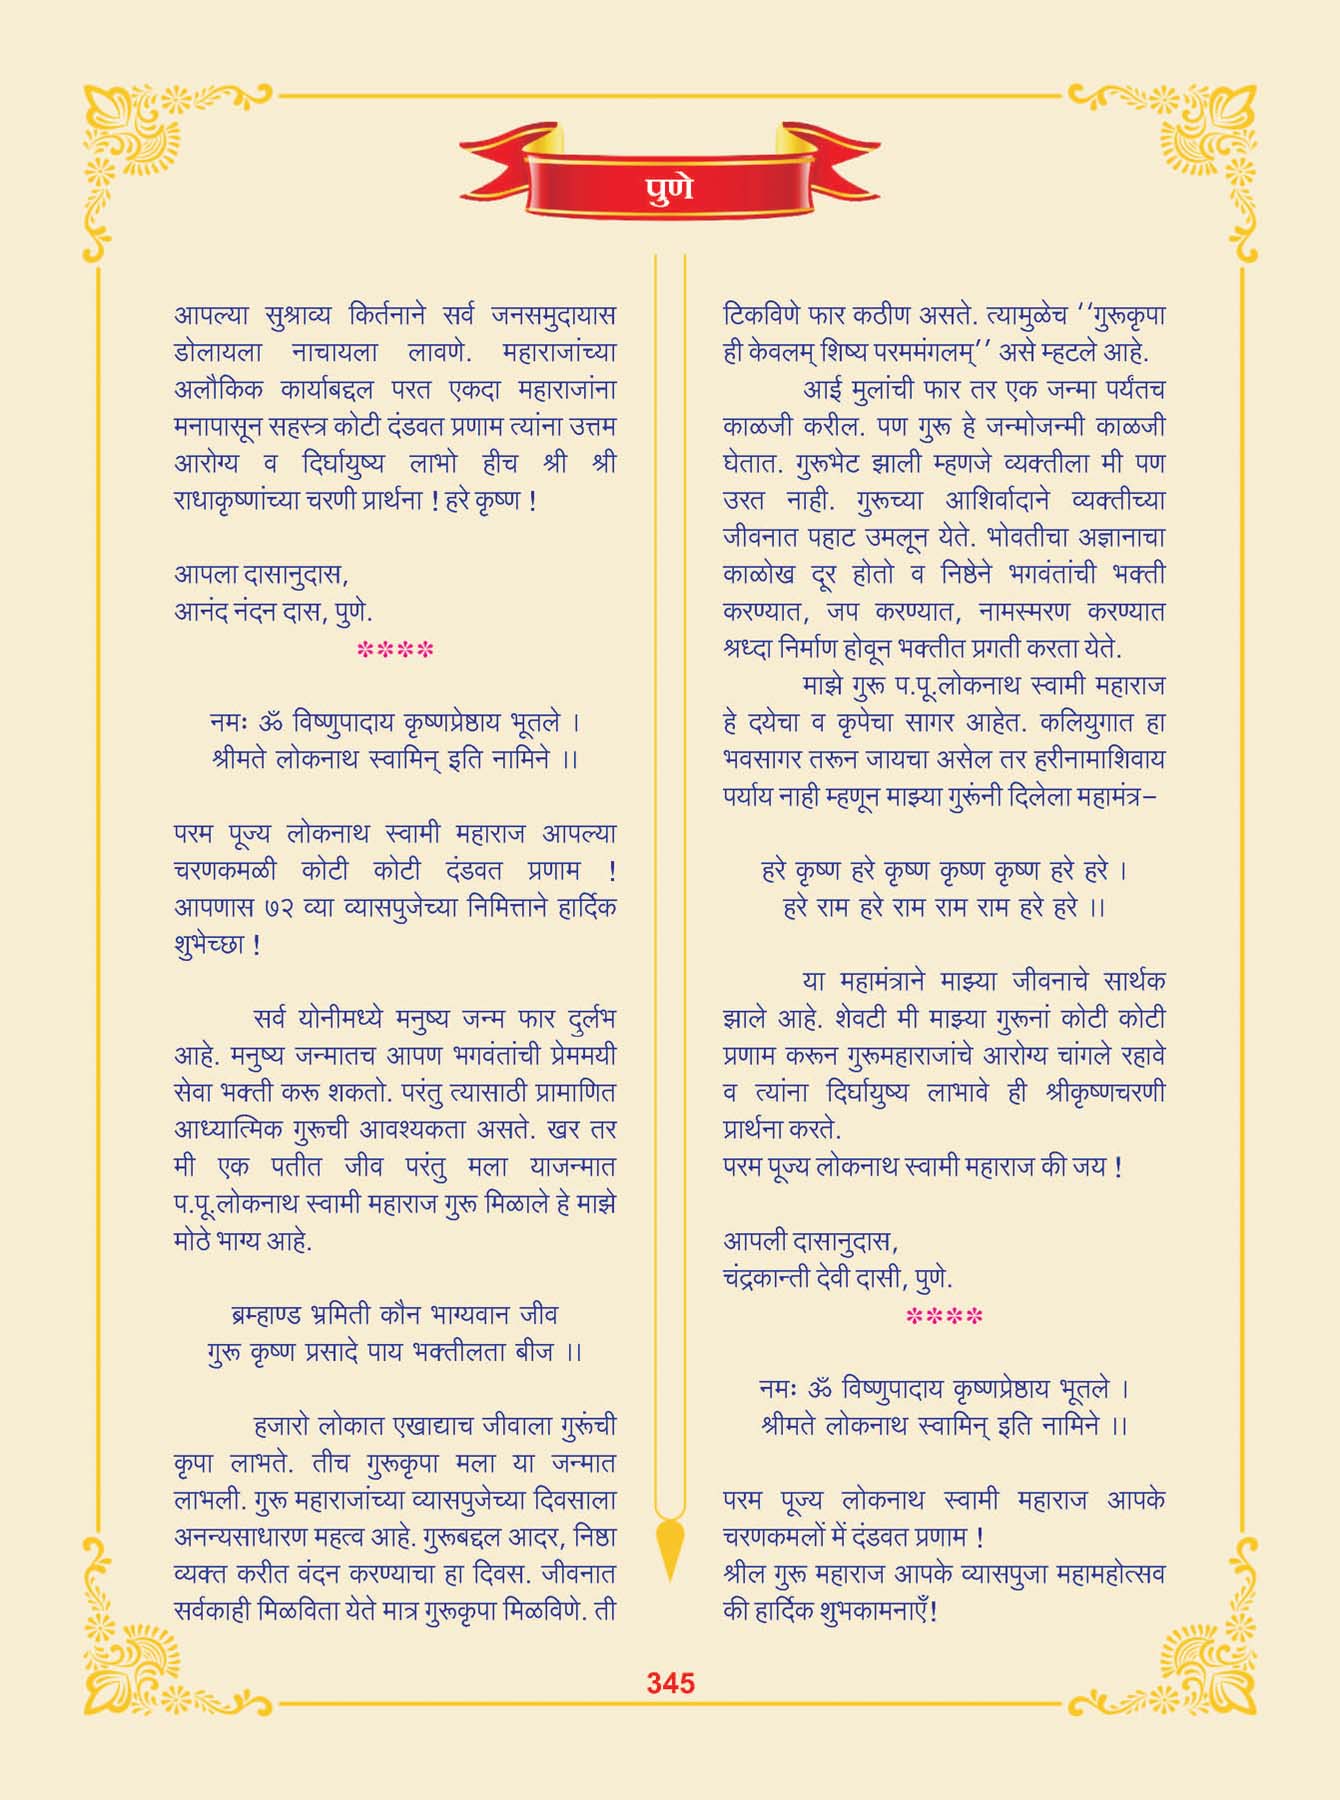 पुणे
आपल्या सुश्राव्य किर्तनाने सर्व जनसमुदायास
डोलायला नाचायला लावणे. महाराजांच्या
अलौकिक कार्याबद्दल परत एकदा महाराजांना
मनापासून सहस्त्र कोटी दंडवत प्रणाम त्यांना उत्तम
आरोग्य व दिर्घायुष्य लाभो हीच श्री श्री
राधाकृष्णांच्या चरणी प्रार्थना ! हरे कृष्ण !
आपला दासानुदास,
आनंद नंदन दास, पुणे.
****
नमः ॐ विष्णुपादाय कृष्णप्रेष्ठाय भूतले ।
श्रीमते लोकनाथ स्वामिन् इति नामिने ।।
परम पूज्य लोकनाथ स्वामी महाराज आपल्या
चरणकमळी कोटी कोटी दंडवत प्रणाम !
आपणास ७२ व्या व्यासपुजेच्या निमित्ताने हार्दिक
शुभेच्छा !
सर्व योनीमध्ये मनुष्य जन्म फार दुर्लभ
आहे. मनुष्य जन्मातच आपण भगवंतांची प्रेममयी
सेवा भक्ती करू शकतो. परंतु त्यासाठी प्रामाणित
आध्यात्मिक गुरूची आवश्यकता असते. खर तर
मी एक पतीत जीव परंतु मला याजन्मात
प.पू.लोकनाथ स्वामी महाराज गुरू मिळाले हे माझे
मोठे भाग्य आहे.
ब्रम्हाण्ड भ्रमिती कौन भाग्यवान जीव
गुरू कृष्ण प्रसादे पाय भक्तीलता बीज ।।
हजारो लोकात एखाद्याच जीवाला गुरूंची
कृपा लाभते. तीच गुरूकृपा मला या जन्मात
लाभली. गुरू महाराजांच्या व्यासपुजेच्या दिवसाला
अनन्यसाधारण महत्व आहे. गुरूबद्दल आदर, निष्ठा
व्यक्त करीत वंदन करण्याचा हा दिवस. जीवनात
सर्वकाही मिळविता येते मात्र गुरूकृपा मिळविणे. ती
टिकविणे फार कठीण असते. त्यामुळेच ‘‘गुरूकृपा
ही केवलम् शिष्य परममंगलम्’’ असे म्हटले आहे.
आई मुलांची फार तर एक जन्मा पर्यंतच
काळजी करील. पण गुरू हे जन्मोजन्मी काळजी
घेतात. गुरूभेट झाली म्हणजे व्यक्तीला मी पण
उरत नाही. गुरूच्या आशिर्वादाने व्यक्तीच्या
जीवनात पहाट उमलून येते. भोवतीचा अज्ञानाचा
काळोख दूर होतो व निष्ठेने भगवंतांची भक्ती
करण्यात, जप करण्यात, नामस्मरण करण्यात
श्रध्दा निर्माण होवून भक्तीत प्रगती करता येते.
माझे गुरू प.पू.लोकनाथ स्वामी महाराज
हे दयेचा व कृपेचा सागर आहेत. कलियुगात हा
भवसागर तरून जायचा असेल तर हरीनामाशिवाय
पर्याय नाही म्हणून माझ्या गुरूंनी दिलेला महामंत्र–
हरे कृष्ण हरे कृष्ण कृष्ण कृष्ण हरे हरे ।
हरे राम हरे राम राम राम हरे हरे ।।
या महामंत्राने माझ्या जीवनाचे सार्थक
झाले आहे. शेवटी मी माझ्या गुरूनां कोटी कोटी
प्रणाम करून गुरूमहाराजांचे आरोग्य चांगले रहावे
व त्यांना दिर्घायुष्य लाभावे ही श्रीकृष्णचरणी
प्रार्थना करते.
परम पूज्य लोकनाथ स्वामी महाराज की जय !
आपली दासानुदास,
चंद्रकान्ती देवी दासी, पुणे.
****
नमः ॐ विष्णुपादाय कृष्णप्रेष्ठाय भूतले ।
श्रीमते लोकनाथ स्वामिन् इति नामिने ।।
परम पूज्य लोकनाथ स्वामी महाराज आपके
चरणकमलों में दंडवत प्रणाम !
श्रील गुरू महाराज आपके व्यासपुजा महामहोत्सव
की हार्दिक शुभकामनाएँ!
345